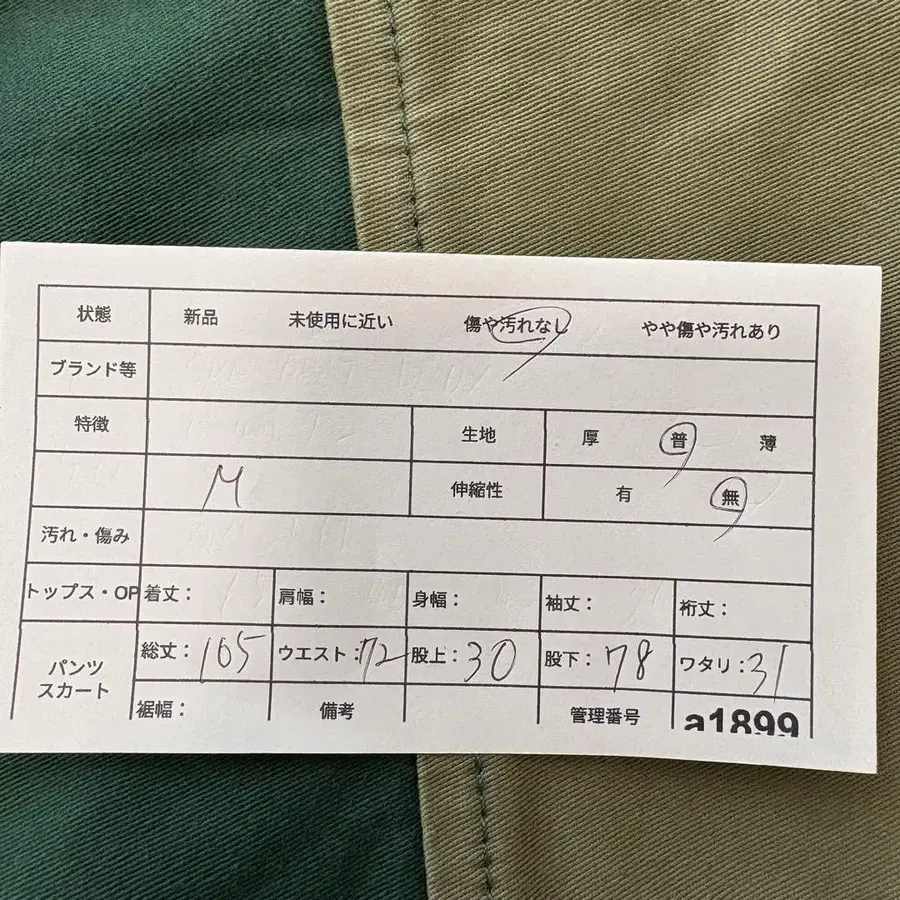 状態 新品 未使用に近い 傷や汚れなし やや傷や汚れあり
ブランド等
特徴 生地 厚 普 薄
M 伸縮性 有 無
汚れ・傷み
トップス・OP 着丈: 肩幅: 身幅: 袖丈: 裄丈:
パンツ スカート 総丈:105 ウエスト:72 股上:30 股下:78 ワタリ:31
裾幅: 備考 管理番号 a1899